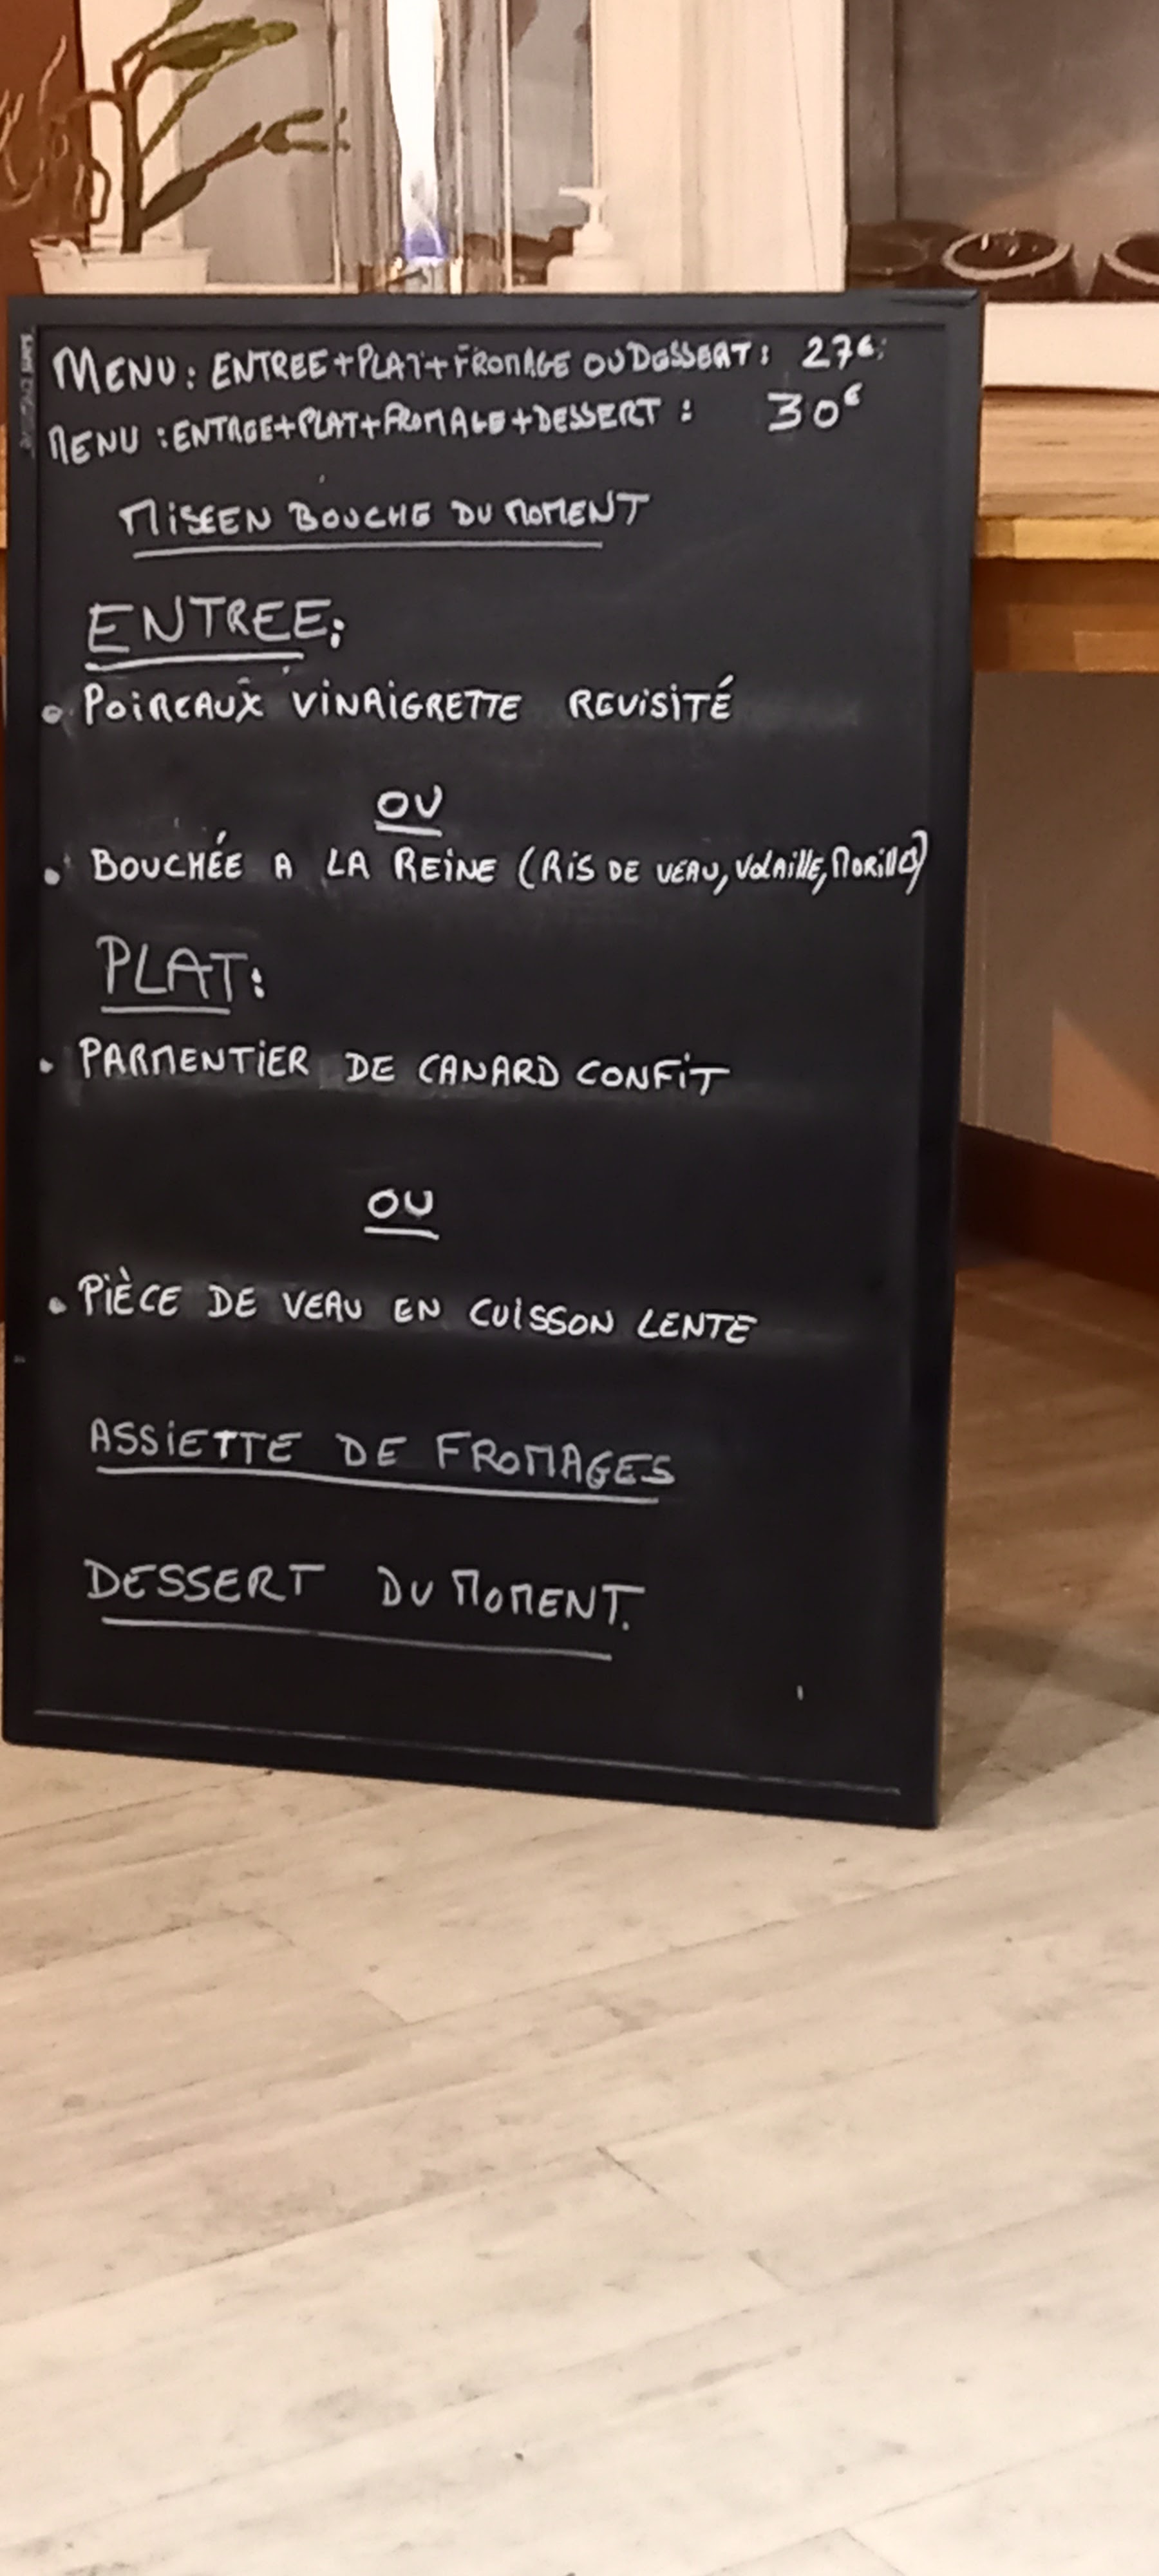 MENU: ENTREE+PLAT+FROMAGE OU DESSERT: 27€
MENU: ENTREE+PLAT+FROMAGE+DESSERT: 30€
MISE EN BOUCHE DU MOMENT
ENTREE:
• POIREAUX VINAIGRETTE REVISITÉ
OU
• BOUCHÉE A LA REINE (RIS DE VEAU, VOLAILLE, MORILLE)
PLAT:
• PARMENTIER DE CANARD CONFIT
OU
• PIÈCE DE VEAU EN CUISSON LENTE
ASSIETTE DE FROMAGES
DESSERT DU MOMENT.